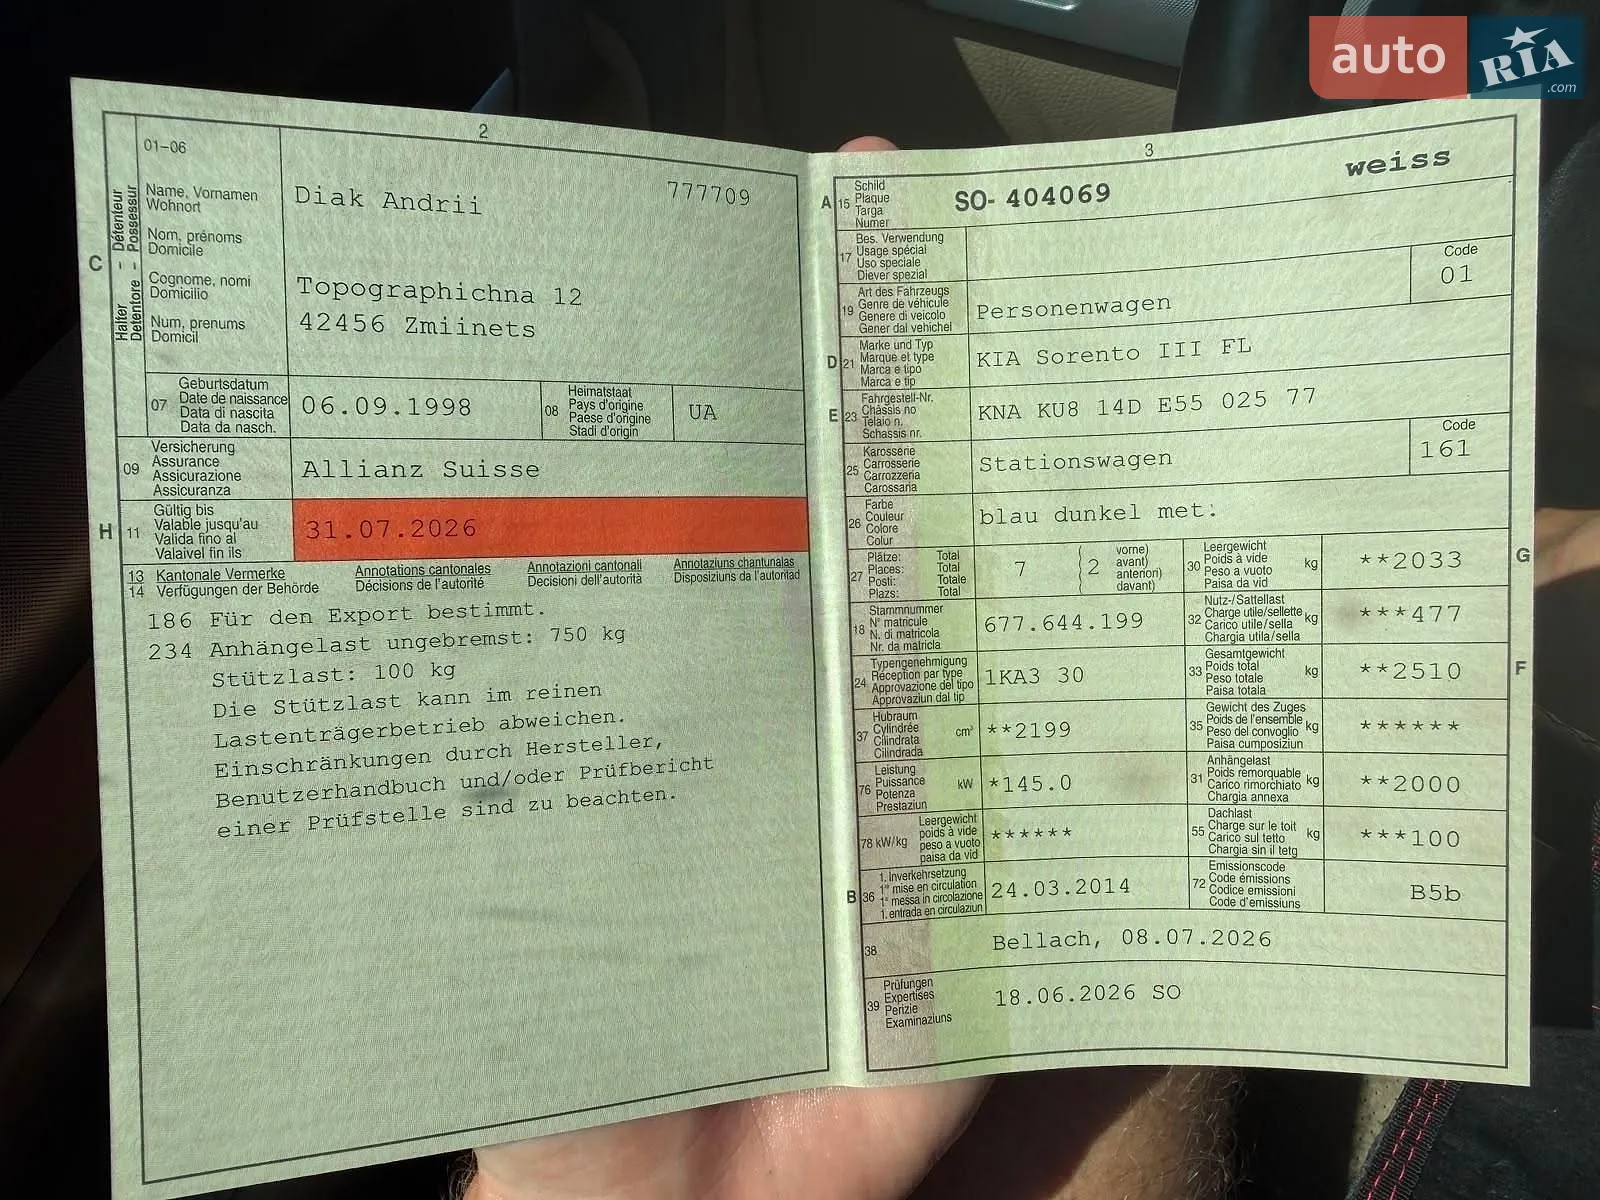 auto RIA .com
2
01-06
C
Halter - Détenteur
Detentore - Possessur
Name, Vornamen
Wohnort
Nom, prénoms
Domicile
Cognome, nomi
Domicilio
Num, prenums
Domicil
Diak Andrii
777709
Topographichna 12
42456 Zmiinets
07
Geburtsdatum
Date de naissance
Data di nascita
Data da nasch.
06.09.1998
08
Heimatstaat
Pays d'origine
Paese d'origine
Stadi d'origin
UA
09
Versicherung
Assurance
Assicurazione
Assicuranza
Allianz Suisse
H
11
Gültig bis
Valable jusqu'au
Valida fino al
Valaivel fin ils
31.07.2026
13
14
Kantonale Vermerke
Verfügungen der Behörde
Annotations cantonales
Décisions de l'autorité
Annotazioni cantonali
Decisioni dell'autorità
Annotaziuns chantunalas
Disposiziuns da l'autoritad
186 Für den Export bestimmt.
234 Anhängelast ungebremst: 750 kg
Stützlast: 100 kg
Die Stützlast kann im reinen
Lastenträgerbetrieb abweichen.
Einschränkungen durch Hersteller,
Benutzerhandbuch und/oder Prüfbericht
einer Prüfstelle sind zu beachten.
3
weiss
A
15
Schild
Plaque
Targa
Numer
SO- 404069
17
Bes. Verwendung
Usage spécial
Uso speciale
Diever spezial
Code
01
19
Art des Fahrzeugs
Genre de véhicule
Genere di veicolo
Gener dal vehichel
Personenwagen
D
21
Marke und Typ
Marque et type
Marca e tipo
Marca e tip
KIA Sorento III FL
E
23
Fahrgestell-Nr.
Châssis no
Telaio n.
Schassis nr.
KNA KU8 14D E55 025 77
25
Karosserie
Carrosserie
Carrozzeria
Carossaria
Stationswagen
Code
161
26
Farbe
Couleur
Colore
Colur
blau dunkel met.
27
Plätze: Total
Places: Total
Posti: Totale
Plazs: Total
7
2
vorne)
avant)
anteriori)
davant)
30
Leergewicht
Poids à vide
Peso a vuoto
Paisa da vid
kg
**2033
G
18
Stammnummer
N° matricule
N. di matricola
Nr. da matricla
677.644.199
32
Nutz-/Sattellast
Charge utile/sellette
Carico utile/sella
Chargia utila/sella
kg
***477
24
Typengenehmigung
Réception par type
Approvazione del tipo
Approvaziun dal tip
1KA3 30
33
Gesamtgewicht
Poids total
Peso totale
Paisa totala
kg
**2510
F
37
Hubraum
Cylindrée
Cilindrata
Cilindrada
cm³
**2199
35
Gewicht des Zuges
Poids de l'ensemble
Peso del convoglio
Paisa cumposiziun
kg
******
76
Leistung
Puissance
Potenza
Prestaziun
kW
*145.0
31
Anhängelast
Poids remorquable
Carico rimorchiato
Chargia annexa
kg
**2000
78 kW/kg
Leergewicht
poids à vide
peso a vuoto
paisa da vid
******
55
Dachlast
Charge sur le toit
Carico sul tetto
Chargia sin il tetg
kg
***100
B
36
1. Inverkehrsetzung
1re mise en circulation
1a messa in circolazione
1. entrada en circulaziun
24.03.2014
72
Emissionscode
Code émissions
Codice emissioni
Code d'emissiuns
B5b
38
Bellach, 08.07.2026
39
Prüfungen
Expertises
Perizie
Examinaziuns
18.06.2026 SO